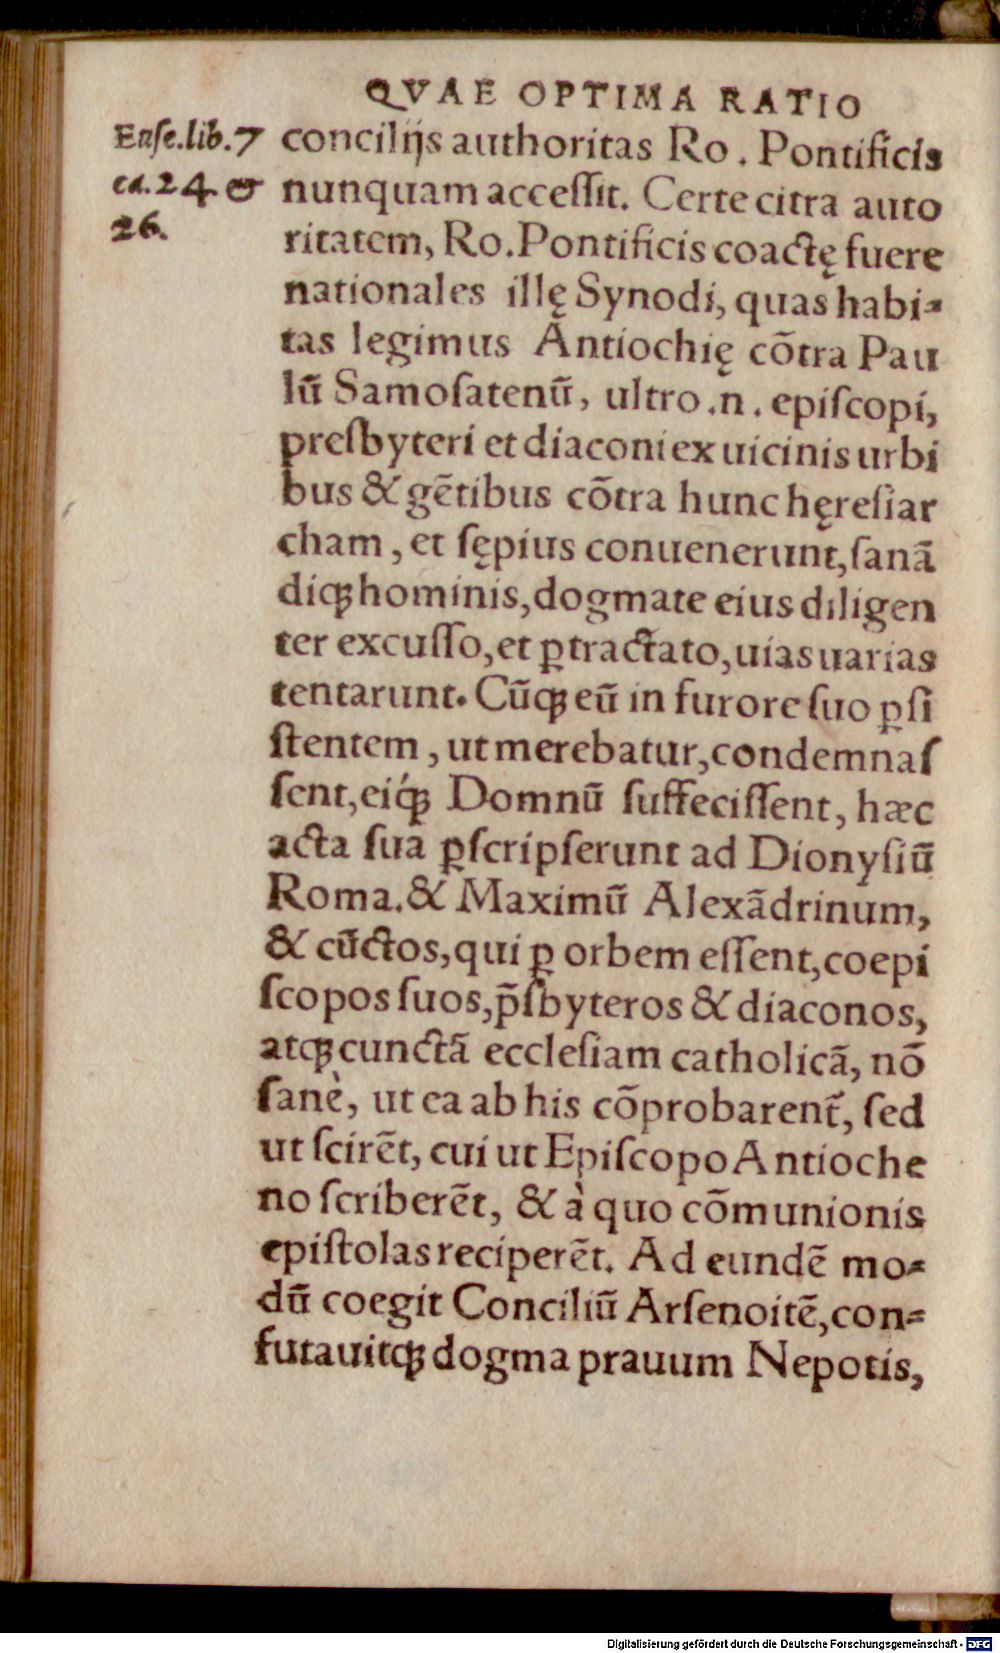 QVAE OPTIMA RATIO
Euſe.lib.7
ca.24 &
26.
concilijs authoritas Ro. Pontificis
nunquam acceſſit. Certe citra auto
ritatem, Ro. Pontificis coactę fuere
nationales illę Synodi, quas habi-
tas legimus Antiochię cōtra Pau
lū Samoſatenū, ultro .n. epiſcopi,
preſbyteri et diaconi ex uicinis urbi
bus & gētibus cōtra hunc hęreſiar
cham, et ſępius conuenerunt, ſanā
diqꝫ hominis, dogmate eius diligen
ter excuſſo, et ꝑtractato, uias uarias
tentarunt. Cūqꝫ eū in furore ſuo ꝑſi
ſtentem, ut merebatur, condemnaſ
ſent, eiqꝫ́ Domnū ſuffeciſſent, hæc
acta ſua ꝑſcripſerunt ad Dionyſiū
Roma. & Maximū Alexādrinum,
& cūctos, qui ꝑ orbem eſſent, coepi
ſcopos ſuos, p̄ſbyteros & diaconos,
atqꝫ cunctā eccleſiam catholicā, nō
ſanè, ut ea ab his cōprobarent̄, ſed
ut ſcirēt, cui ut Epiſcopo Antioche
no ſcriberēt, & à quo cōmunionis
epiſtolas reciperēt. Ad eundē mo-
dū coegit Conciliū Arſenoitē, con-
futauitqꝫ dogma prauum Nepotis,
Digitalisierung gefördert durch die Deutsche Forschungsgemeinschaft - DFG